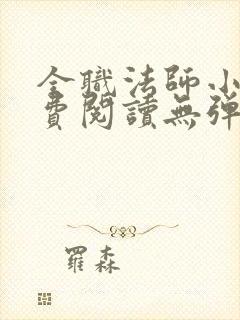 全職法師小
費閱讀無彈
羅森